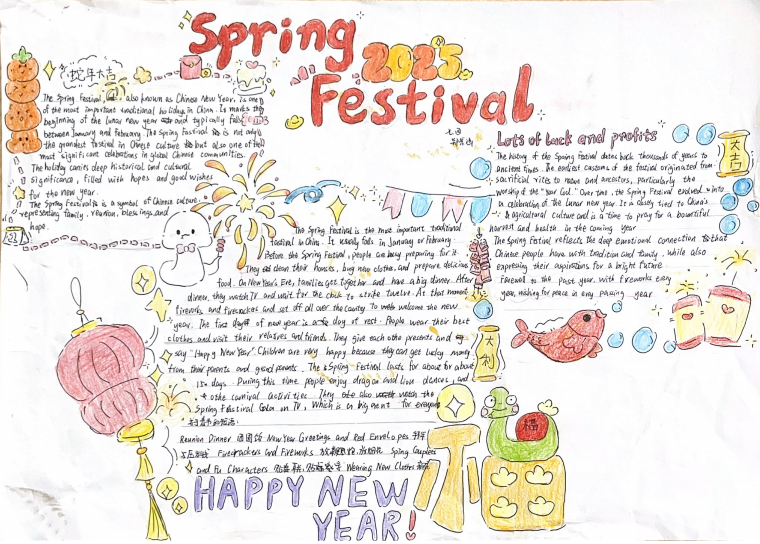 Spring
2025
Festival
蛇年大吉
The Spring Festival, also known as Chinese New Year, is one
of the most important traditional holiday in China. It marks the
beginning of the lunar new year and typically falls
between January and February. The Spring Festival is not only
the grandest festival in Chinese culture but also one of the
most significant celebrations in global Chinese communities.
The holiday carris deep historical and cultural
significance, filled with hopes and good wishes
for the new year.
The Spring Festival is a symbol of Chinese culture,
representing family, reunion, blessings, and
hope.
The Spring Festival is the most important traditional
festival in China. It usually falls in January or February.
Before the Spring Festival, people are busy preparing for it.
They clean their houses, buy new clothes, and prepare delicious
food. On New Year's Eve, families get together and have a big dinner. After
dinner, they watch TV and wait for the clock to strike twelve. At that moment
fireworks and firecrackers and set off all over the country to welcome the new
year. The first day of new year is a day of rest. People wear their best
clothes and visit their relatives and friends. They give each othe presents and
say "Happy New Year". Children are very happy because they can get lucky money
from their parents and grandparents. The Spring Festival lasts for about for about
15 days. During this time people enjoy dragon and lion dances, and
othe carnival activities. They also watch the
Spring Festival Gala on TV, which is a big event for everyone
Reunion Dinner 团圆饭 New Year Greetings and Red Envelopes 拜年
与压岁钱 Firecrackers and Fireworks Spring Couplets
and Fu Characters Wearing New Clothes
HAPPY NEW
YEAR!
Lots of luck and profits
The history of the Spring Festival dates back thousands of years to
ancient times. The earliest customs of the festival originated from
sacrificial rites to mean and ancestors, particularly the
worship of the "Year God." Over time, the Spring Festival evolved into
a celebration of the lunar new year. It is closely tied to China's
agricultural culture and is a time to pray for a bountiful
harvest and health in the coming year
The Spring Festival reflects the deep emotional connection that
Chinese people have with tradition and family, while also
expressing their aspirations for a bright future
Farewell to the past year with fireworks every
year, wishing for peace in every passing year
大吉
大利
福
福